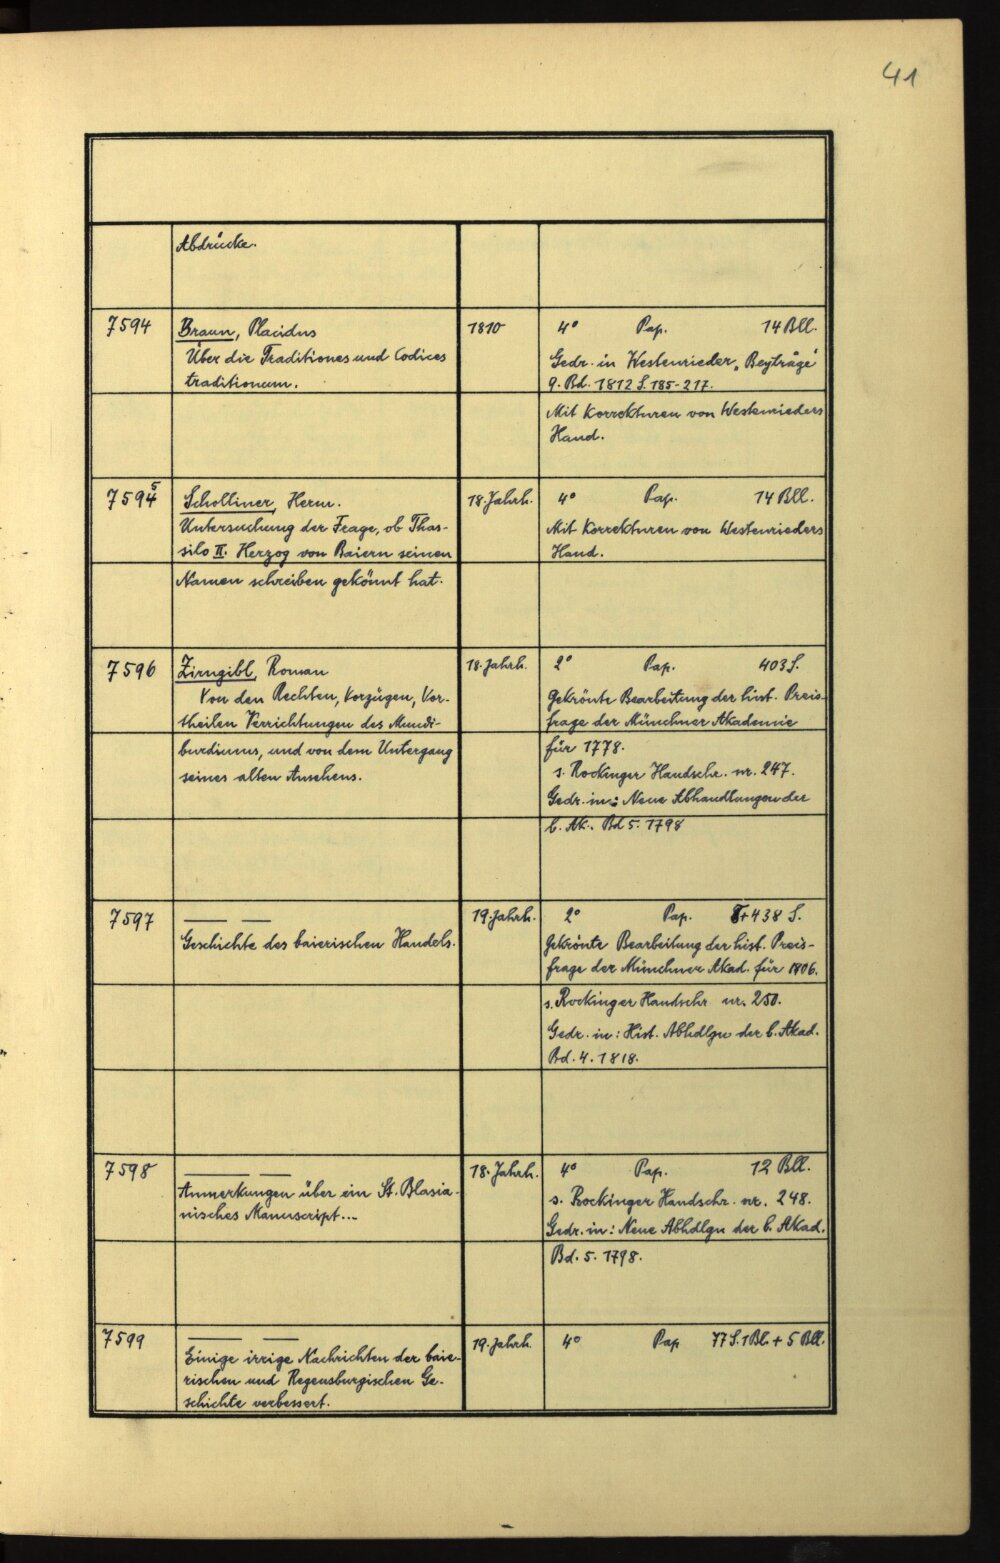 41
Abdrücke.
7594
Braun, Placidus
Über die Traditiones und Codices
traditionum.
1810
4° Pap. 14 Bll.
Gedr. in Westenrieder „Beyträge"
9. Bd. 1812 S. 185-217.
Mit Korrekturen von Westenrieders
Hand.
75945
Scholliner, Herm.
Untersuchung der Frage, ob Thas-
silo II. Herzog von Baiern seinen
Namen schreiben gekönnt hat.
18. Jahrh.
4° Pap. 14 Bll.
Mit Korrekturen von Westenrieders
Hand.
7596
Zirngibl, Roman
Von den Rechten, Vorzügen, Vor-
theilen Verrichtungen des Mundi-
burdiums, und von dem Untergang
seines alten Ansehens.
18. Jahrh.
2° Pap. 403 S.
Gekrönte Bearbeitung der hist. Preis-
frage der Münchner Akademie
für 1778.
s. Rockinger Handschr. nr. 247.
Gedr. in: Neue Abhandlungen der
b. Ak. Bd 5. 1798
7597
Geschichte des baierischen Handels.
19. Jahrh.
2° Pap. +438 S.
Gekrönte Bearbeitung der hist. Preis-
frage der Münchner Akad. für 1806.
s. Rockinger Handschr nr. 250.
Gedr. in: Hist. Abhdlgn der b. Akad.
Bd. 4. 1818.
7598
Anmerkungen über ein St. Blasia-
nisches Manuscript...
18. Jahrh.
4° Pap. 12 Bll.
s. Rockinger Handschr. nr. 248.
Gedr. in: Neue Abhdlgn der b. Akad.
Bd. 5. 1798.
7599
Einige irrige Nachrichten der baie-
rischen und Regensburgischen Ge-
schichte verbessert.
19. Jahrh.
4° Pap 77 S. 1 Bl. + 5 Bll.